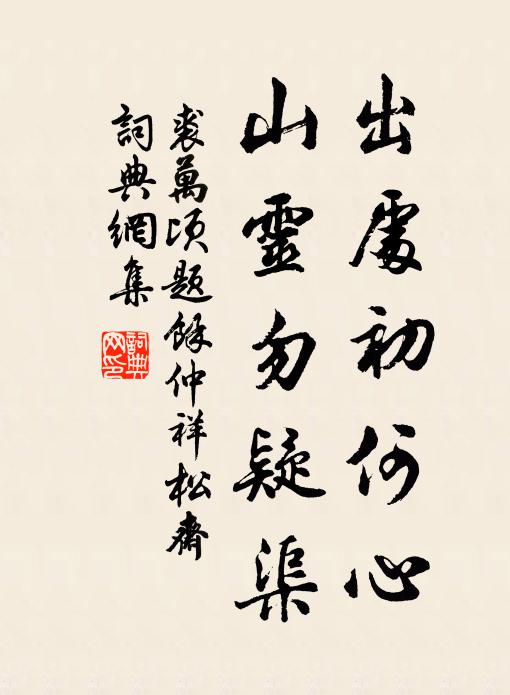 出處初何心
山靈勿疑渠
裘萬頃题餘仲祥松齋
詞典網集
詞典网印